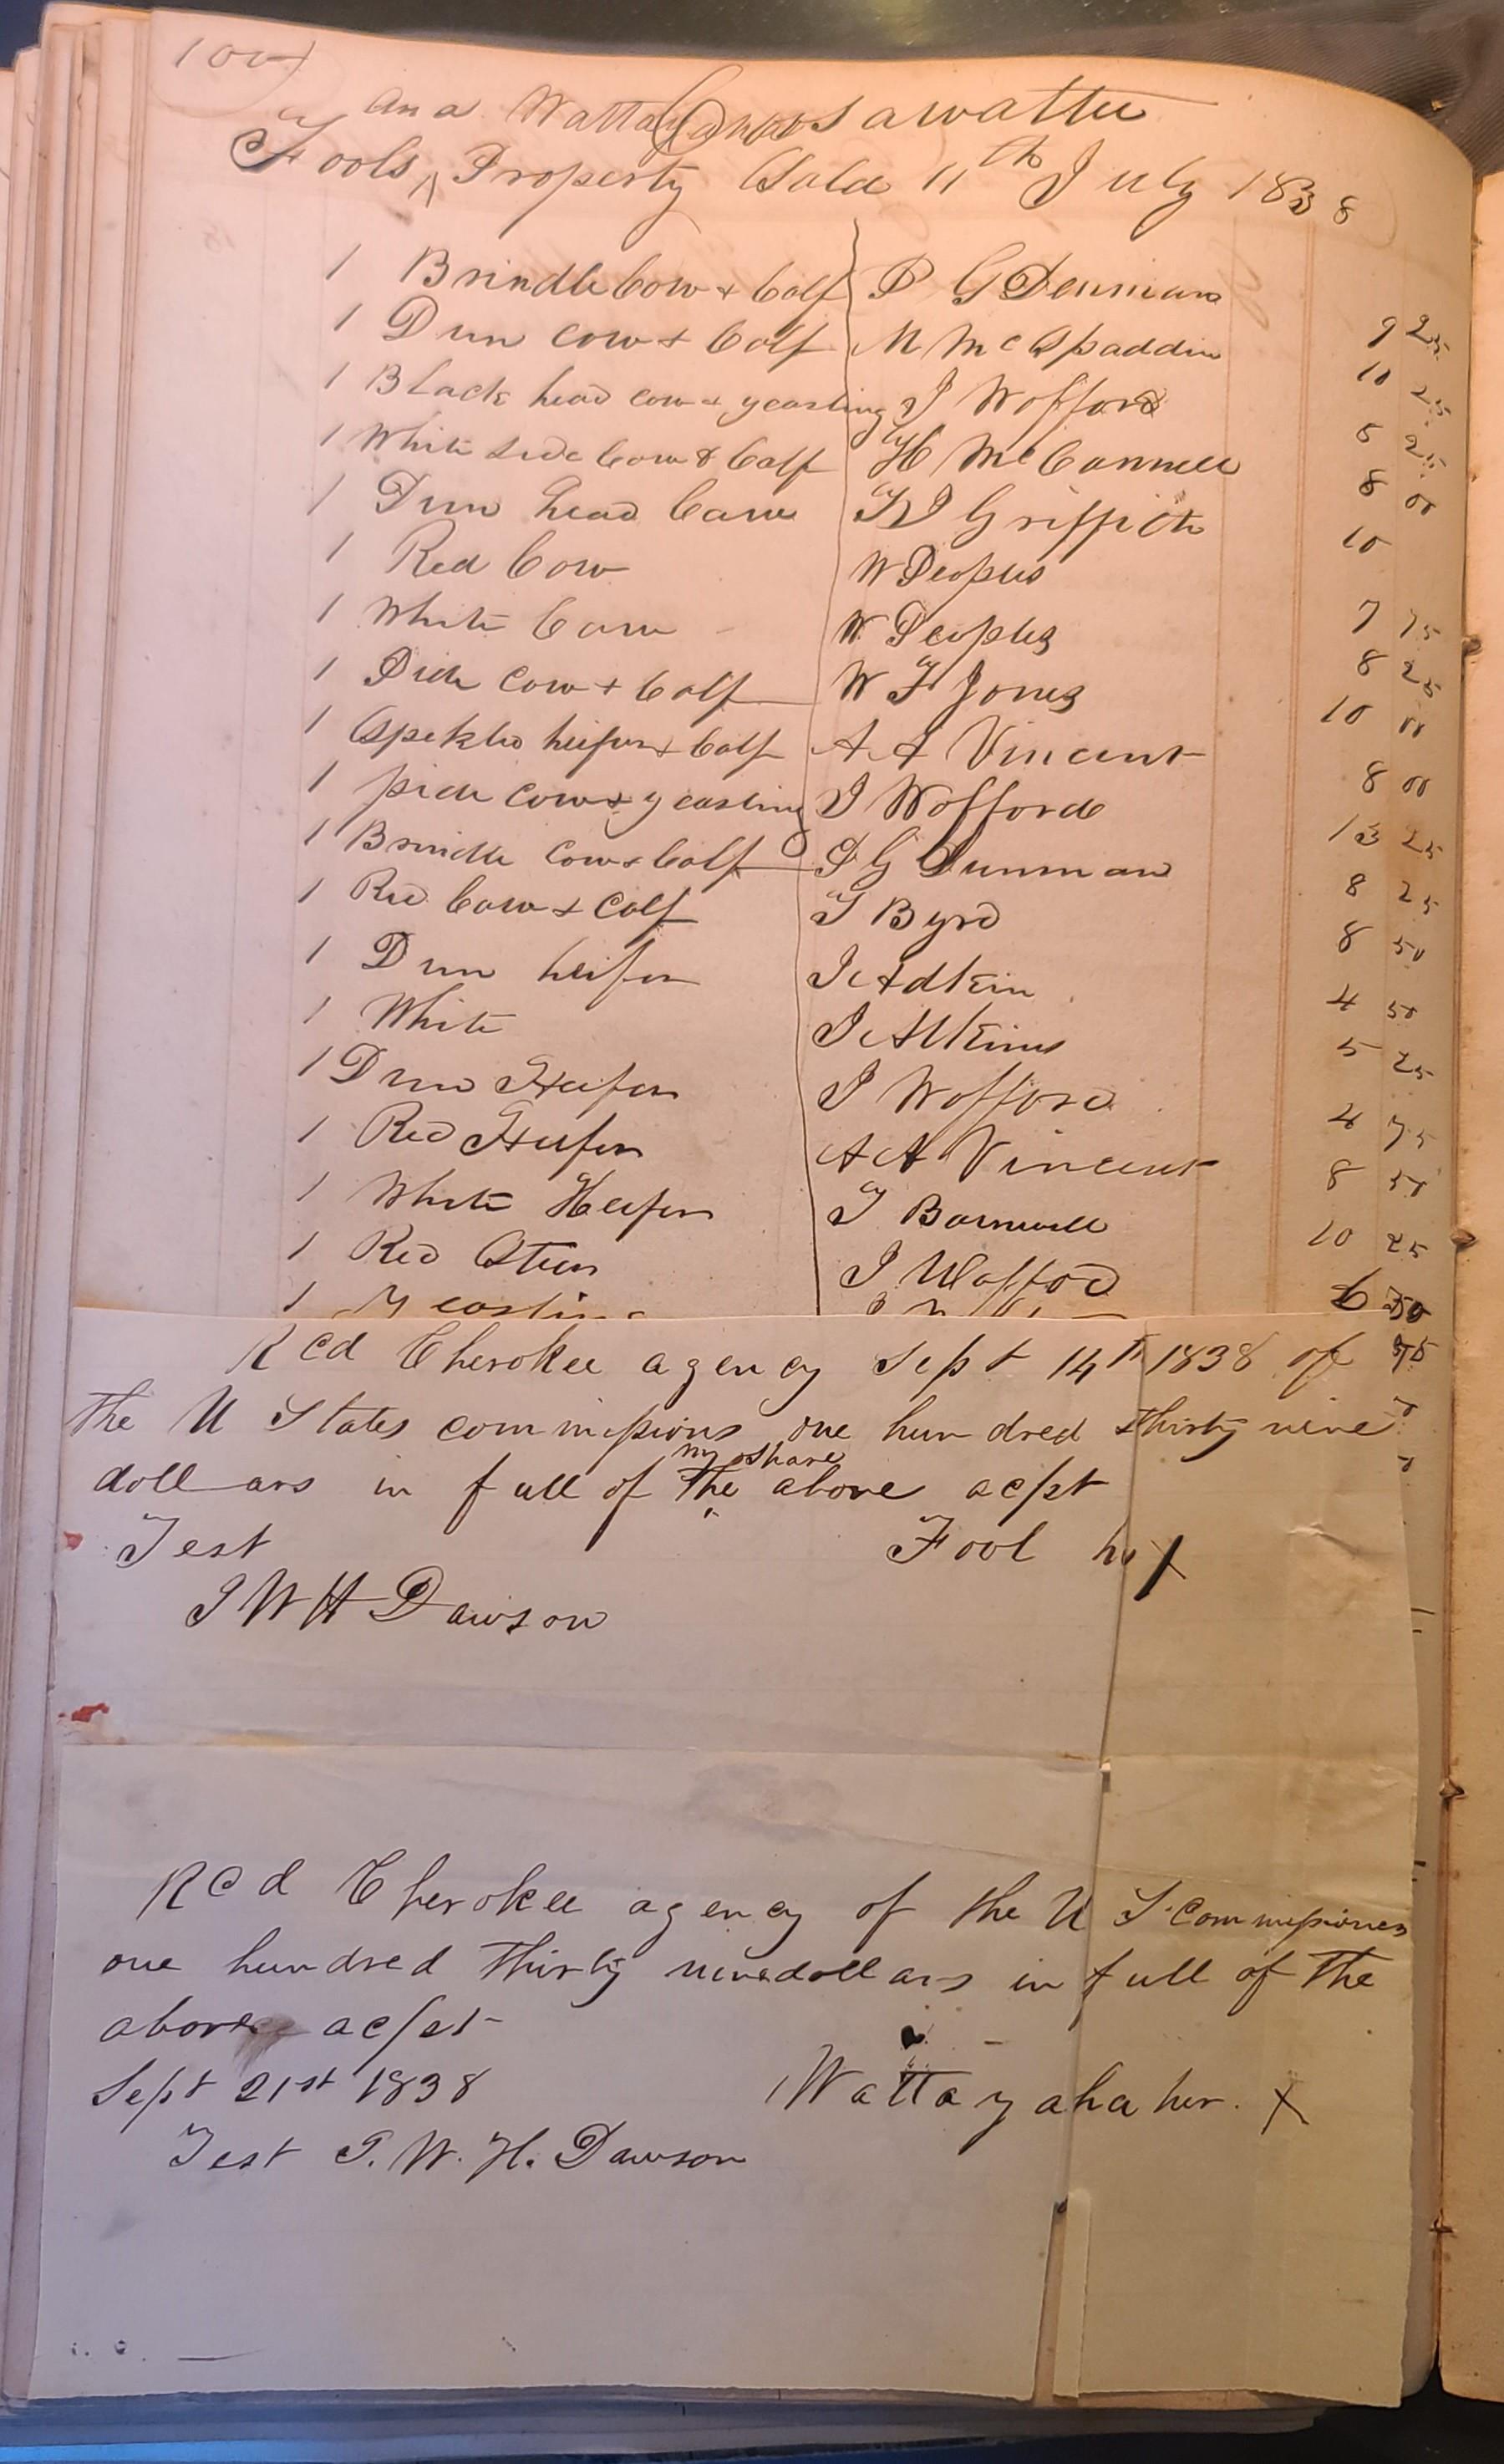 100
Coosawattee
and Wattaya
Fools, ^ Property Sold 11th July 1838
1 Brindle Cow & Calf P G Denman 9 25
1 Dun cow & Calf M McSpaddin 10 25
1 Black head cow & yearling J Wofford 5 25
1 White side Cow & Calf H McConnell 8 00
1 Dun head Cow Griffith 10
1 Red Cow W Peoples 7 75
1 White Cow W Peoples 8 25
1 Pide Cow & Calf W F Jones 10 00
1 Spekled heifer & Calf A A Vincent 8 00
1 pide Cow & yearling J Wofford 13 25
1 Brindle Cow & Calf P G Dunman 8 25
1 Red Cow & Calf T Byrd 8 50
1 Dun heifer J Adkin 4 50
1 White J Atkins 5 25
1 Dun Heifer J Wofford 4 75
1 Red Heifer A A Vincent 8 50
1 White Heifer T Barnwell 10 25
1 Red Steer J Wofford 6 50
1 Yearling
Rcd Cherokee agency Sept 14th 1838 of
the U States commissions one hundred thirty nine
my share
dollars in full of the above acpt
Test Fool his X
J W H Dawson
Rcd Cherokee agency of the U S. Commissioners
one hundred thirty nine dollars in full of the
above acpt
Sept 21st 1838 Wattayaha her. X
Test J. W. H. Dawson